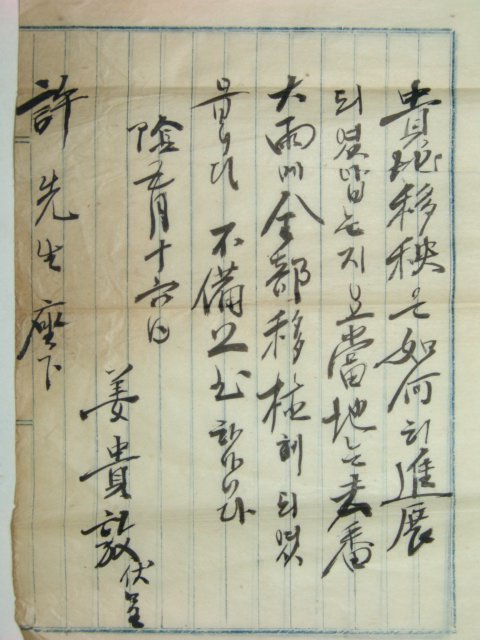 貴地移秧은如何히進展
되였삽는지요當地는去番
大雨에全部移植히되였
습니다 不備上書하나이다
陰五月十六日
姜貴敦伏呈
許先生座下